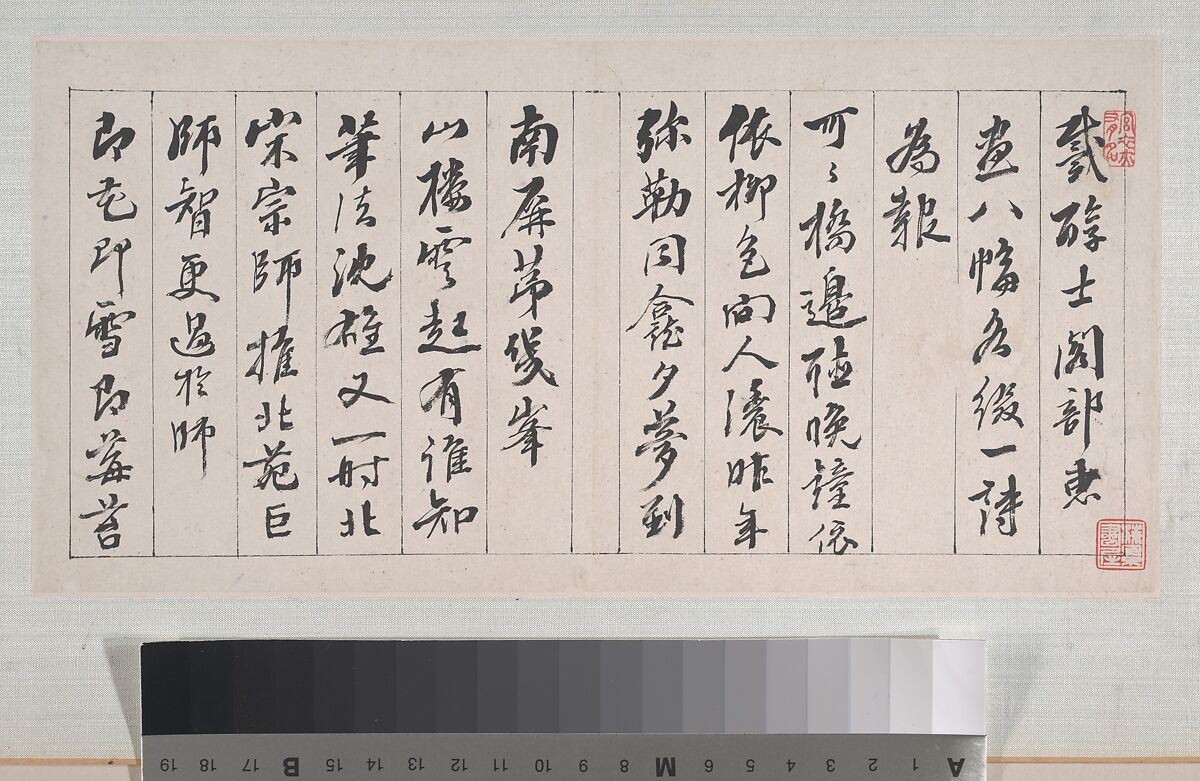 戴醇士閣部惠
畫八幅各綴一詩
為報
可〻橋邊聽晚鐘依
依柳色向人濃昨年
弥勒同龕夕夢到
南屏第幾峯
山樓雲起有誰知
筆法沈雄又一時北
宋宗師推北苑巨
師智更過於師
即花即雪即莓苔
A 1 2 3 4 5 6 M 8 9 10 11 12 13 14 15 B 17 18 19